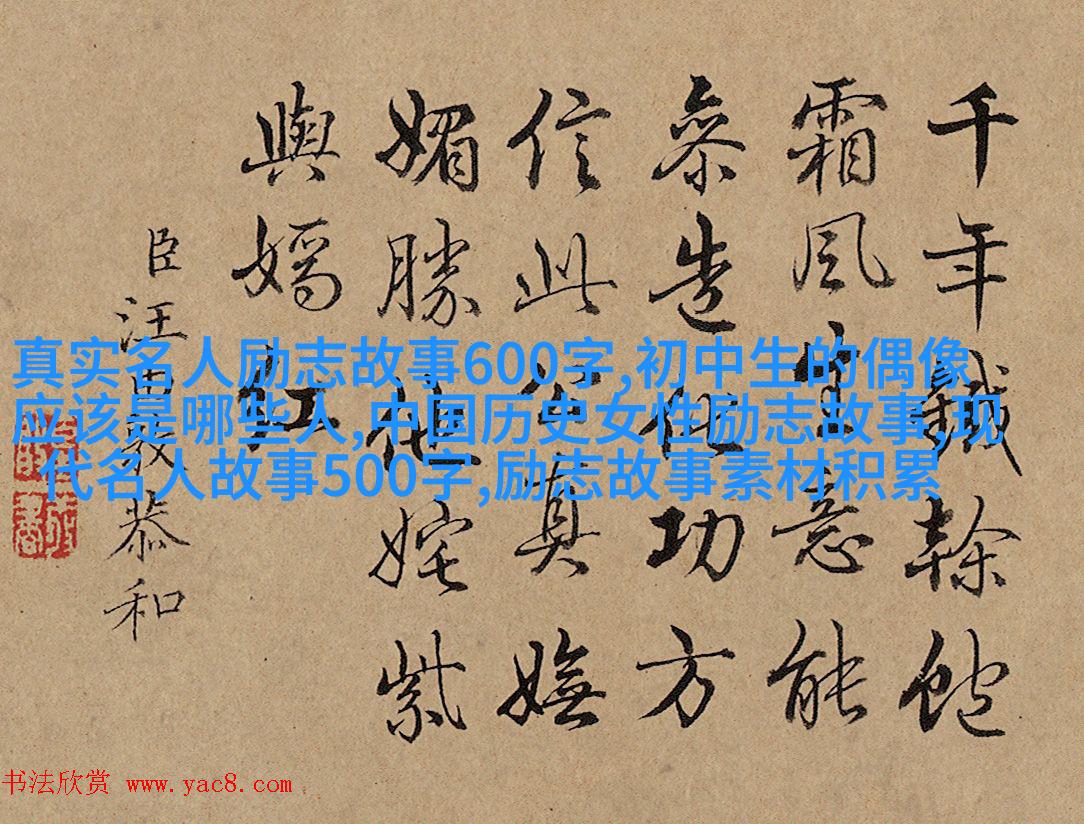 千年鐵榦飽
霜風生意能
參造化功方
信此公真嫵
媚勝他姹紫
與嫣紅
臣汪由敦恭和
真实名人励志故事600字,初中生的偶像
应该是哪些人,中国历史女性励志故事,现
代名人故事500字,励志故事素材积累
书法欣赏 www.yac8.com